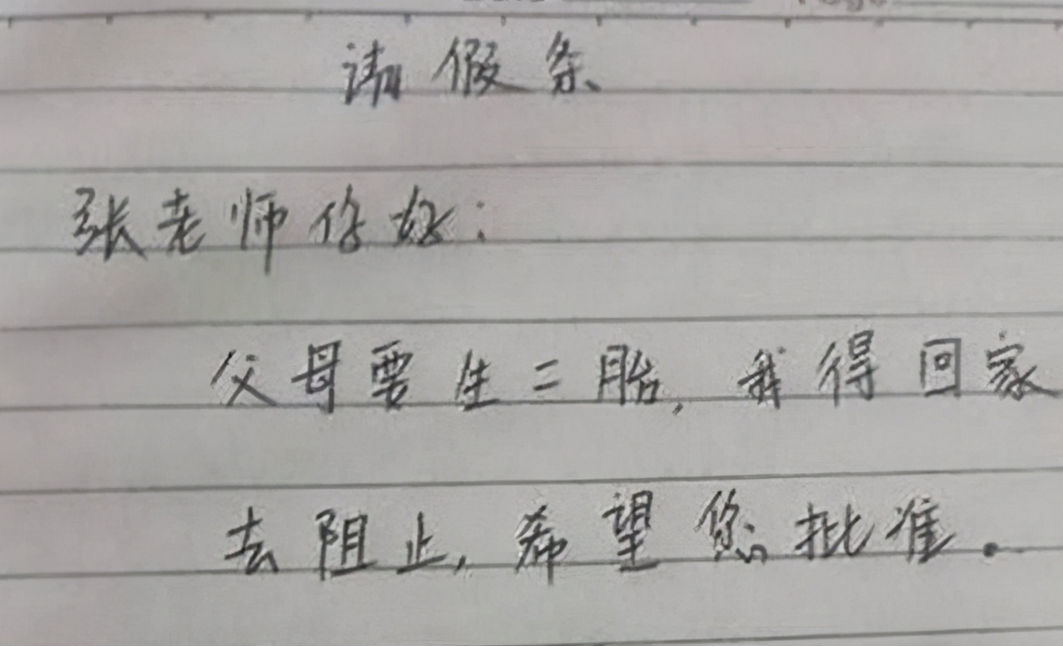 请假条
张老师你好:
父母要生二胎,我得回家
去阻止,希望您批准。